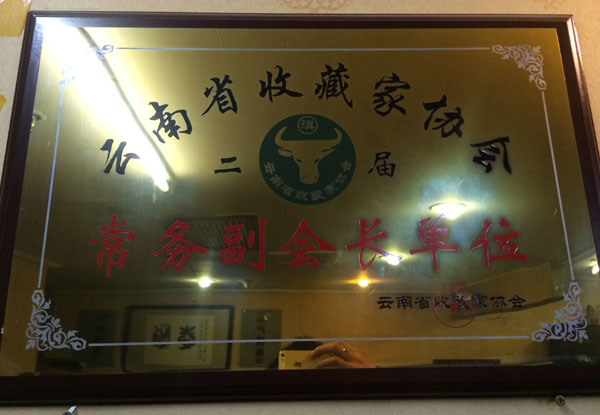 云南省收藏家协会
二届
滇
云南省收藏家协会
常务副会长单位
云南省收藏家协会